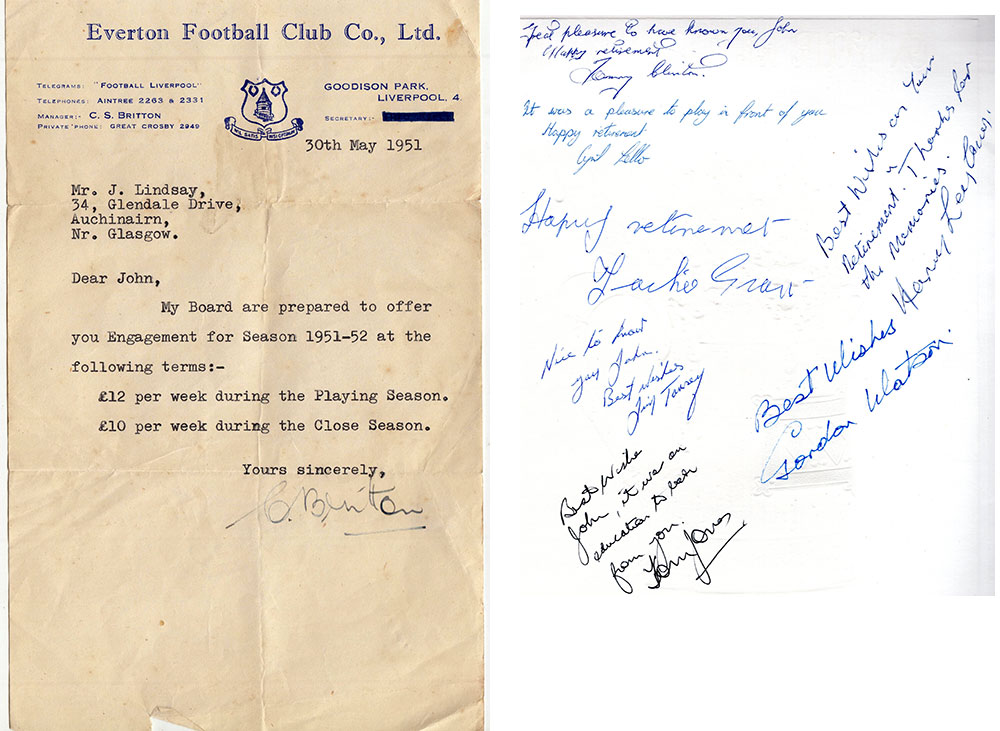 Everton Football Club Co., Ltd.
TELEGRAMS: "FOOTBALL LIVERPOOL"
TELEPHONES: AINTREE 2263 & 2331
MANAGER:- C. S. BRITTON
PRIVATE PHONE: GREAT CROSBY 2949
NIL SATIS NISI OPTIMUM
GOODISON PARK,
LIVERPOOL, 4.
SECRETARY:-
30th May 1951
Mr. J. Lindsay,
34, Glendale Drive,
Auchinairn,
Nr. Glasgow.
Dear John,
My Board are prepared to offer
you Engagement for Season 1951-52 at the
following terms:-
£12 per week during the Playing Season.
£10 per week during the Close Season.
Yours sincerely,
C. Britton
pleasure to have known you, John
Happy retirement
Tommy Clinton.
It was a pleasure to play in front of you
Happy retirement
Cyril Lello
Happy retirement
Jackie Grant
Nice to know
you John.
Best Wishes
Jim Tansey
Best Wishes on Your
Retirement. Thanks for
the Memories.
Harry Leyland.
Best Wishes
Gordon Watson.
Best Wishe
John, it was an
education to learn
from you.
Tom Jones